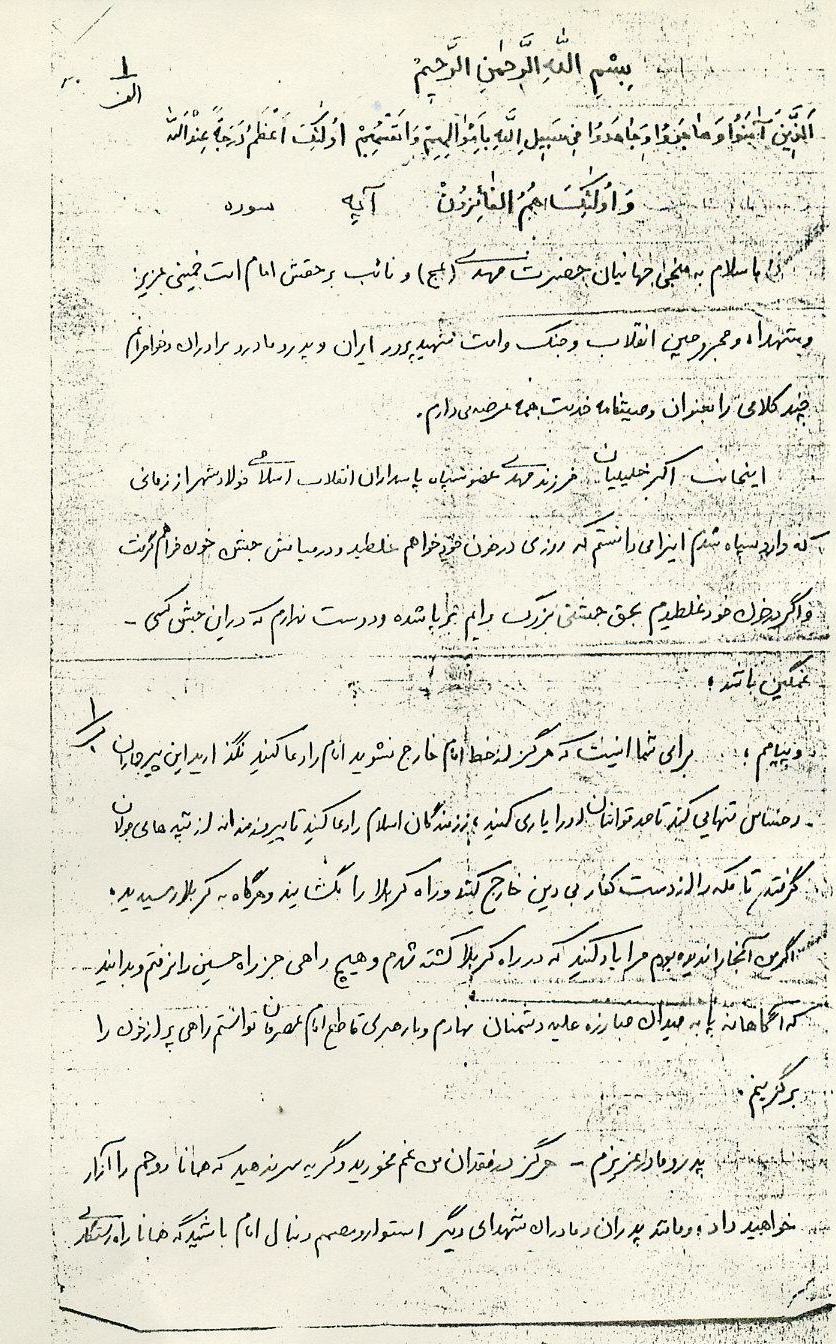 بِسْمِ اللَّهِ الرَّحْمٰنِ الرَّحِيمْ
۱
الف
اَلَّذِينَ آمَنُوا وَ هاجَرُوا وَ جاهَدُوا فِي سَبِيلِ اللَّهِ بِاَمْوالِهِمْ وَ اَنْفُسِهِمْ اُولٰئِكَ اَعْظَمُ دَرَجَةً عِنْدَ اللَّه
وَ اُولٰئِكَ هُمُ الْفائِزُونْ آیه سوره
با سلام به منجی جهانیان حضرت مهدی (عج) و نائب بر حقش امام امت خمینی عزیز
و شهداء و مجروحین انقلاب و جنگ و امت شهید پرور ایران و پدر و مادر و برادران و خواهرانم
چند کلامی را بعنوان وصیتنامه خدمت همه عرضه می دارم.
اینجانب اکبر خلیلیان فرزند مهدی عضو سپاه پاسداران انقلاب اسلامی فولادشهر از زمانی
که وارد سپاه شدم اینرا می دانستم که روزی در خون خود خواهم غلطید و در میانش جشن خون خواهم گرفت
و اگر در خون خود غلطیدم بحق جشنی بزرگ برایم برپا شده و دوست ندارم که در این جشن کسی -
غمگین باشد.
۱
ب
و پیامم: برای شما اینست که هرگز از خط امام خارج نشوید امام را دعا کنید نگذارید این پیر جماران
احساس تنهایی کند تا حد توانتان او را یاری کنید، رزمندگان اسلام را دعا کنید تا پیروزمندانه از تپه های جولان
گرفته تا مکه را از دست کفار بی دین خارج کنند و راه کربلا را بگشایند و هرگاه به کربلا رسیدید،
اگر من آنجا را ندیده بودم مرا یاد کنید که در راه کربلا کشته شدم و هیچ راهی جز راه حسین را نرفتم و بدانید
که آگاهانه پا به میدان مبارزه علیه دشمنان نهادم و با رهبری قاطع امام عصرمان توانستم راهی پر از خون را
برگزینم.
پدر و مادر عزیزم - هرگز در فقدان من غم مخورید و گریه سر ندهید که همانا روحم را آزار
خواهید داد، و مانند پدران و مادران شهدای دیگر استوار و مصمم دنبال امام باشید که همانا راه رستگاری